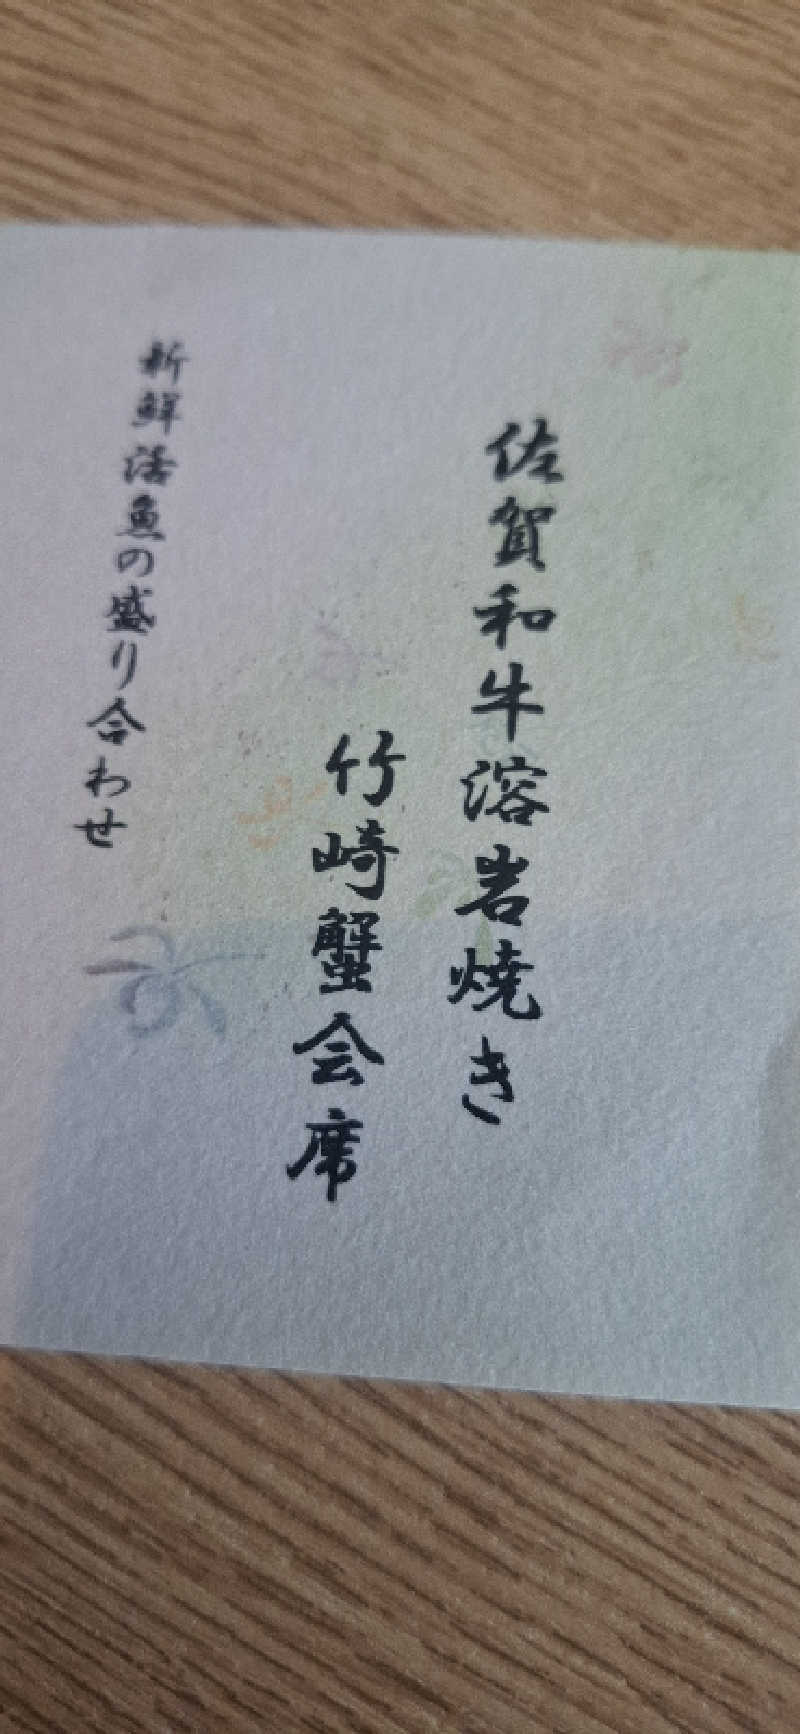 佐賀和牛溶岩焼き
竹崎蟹会席
新鮮活魚の盛り合わせ